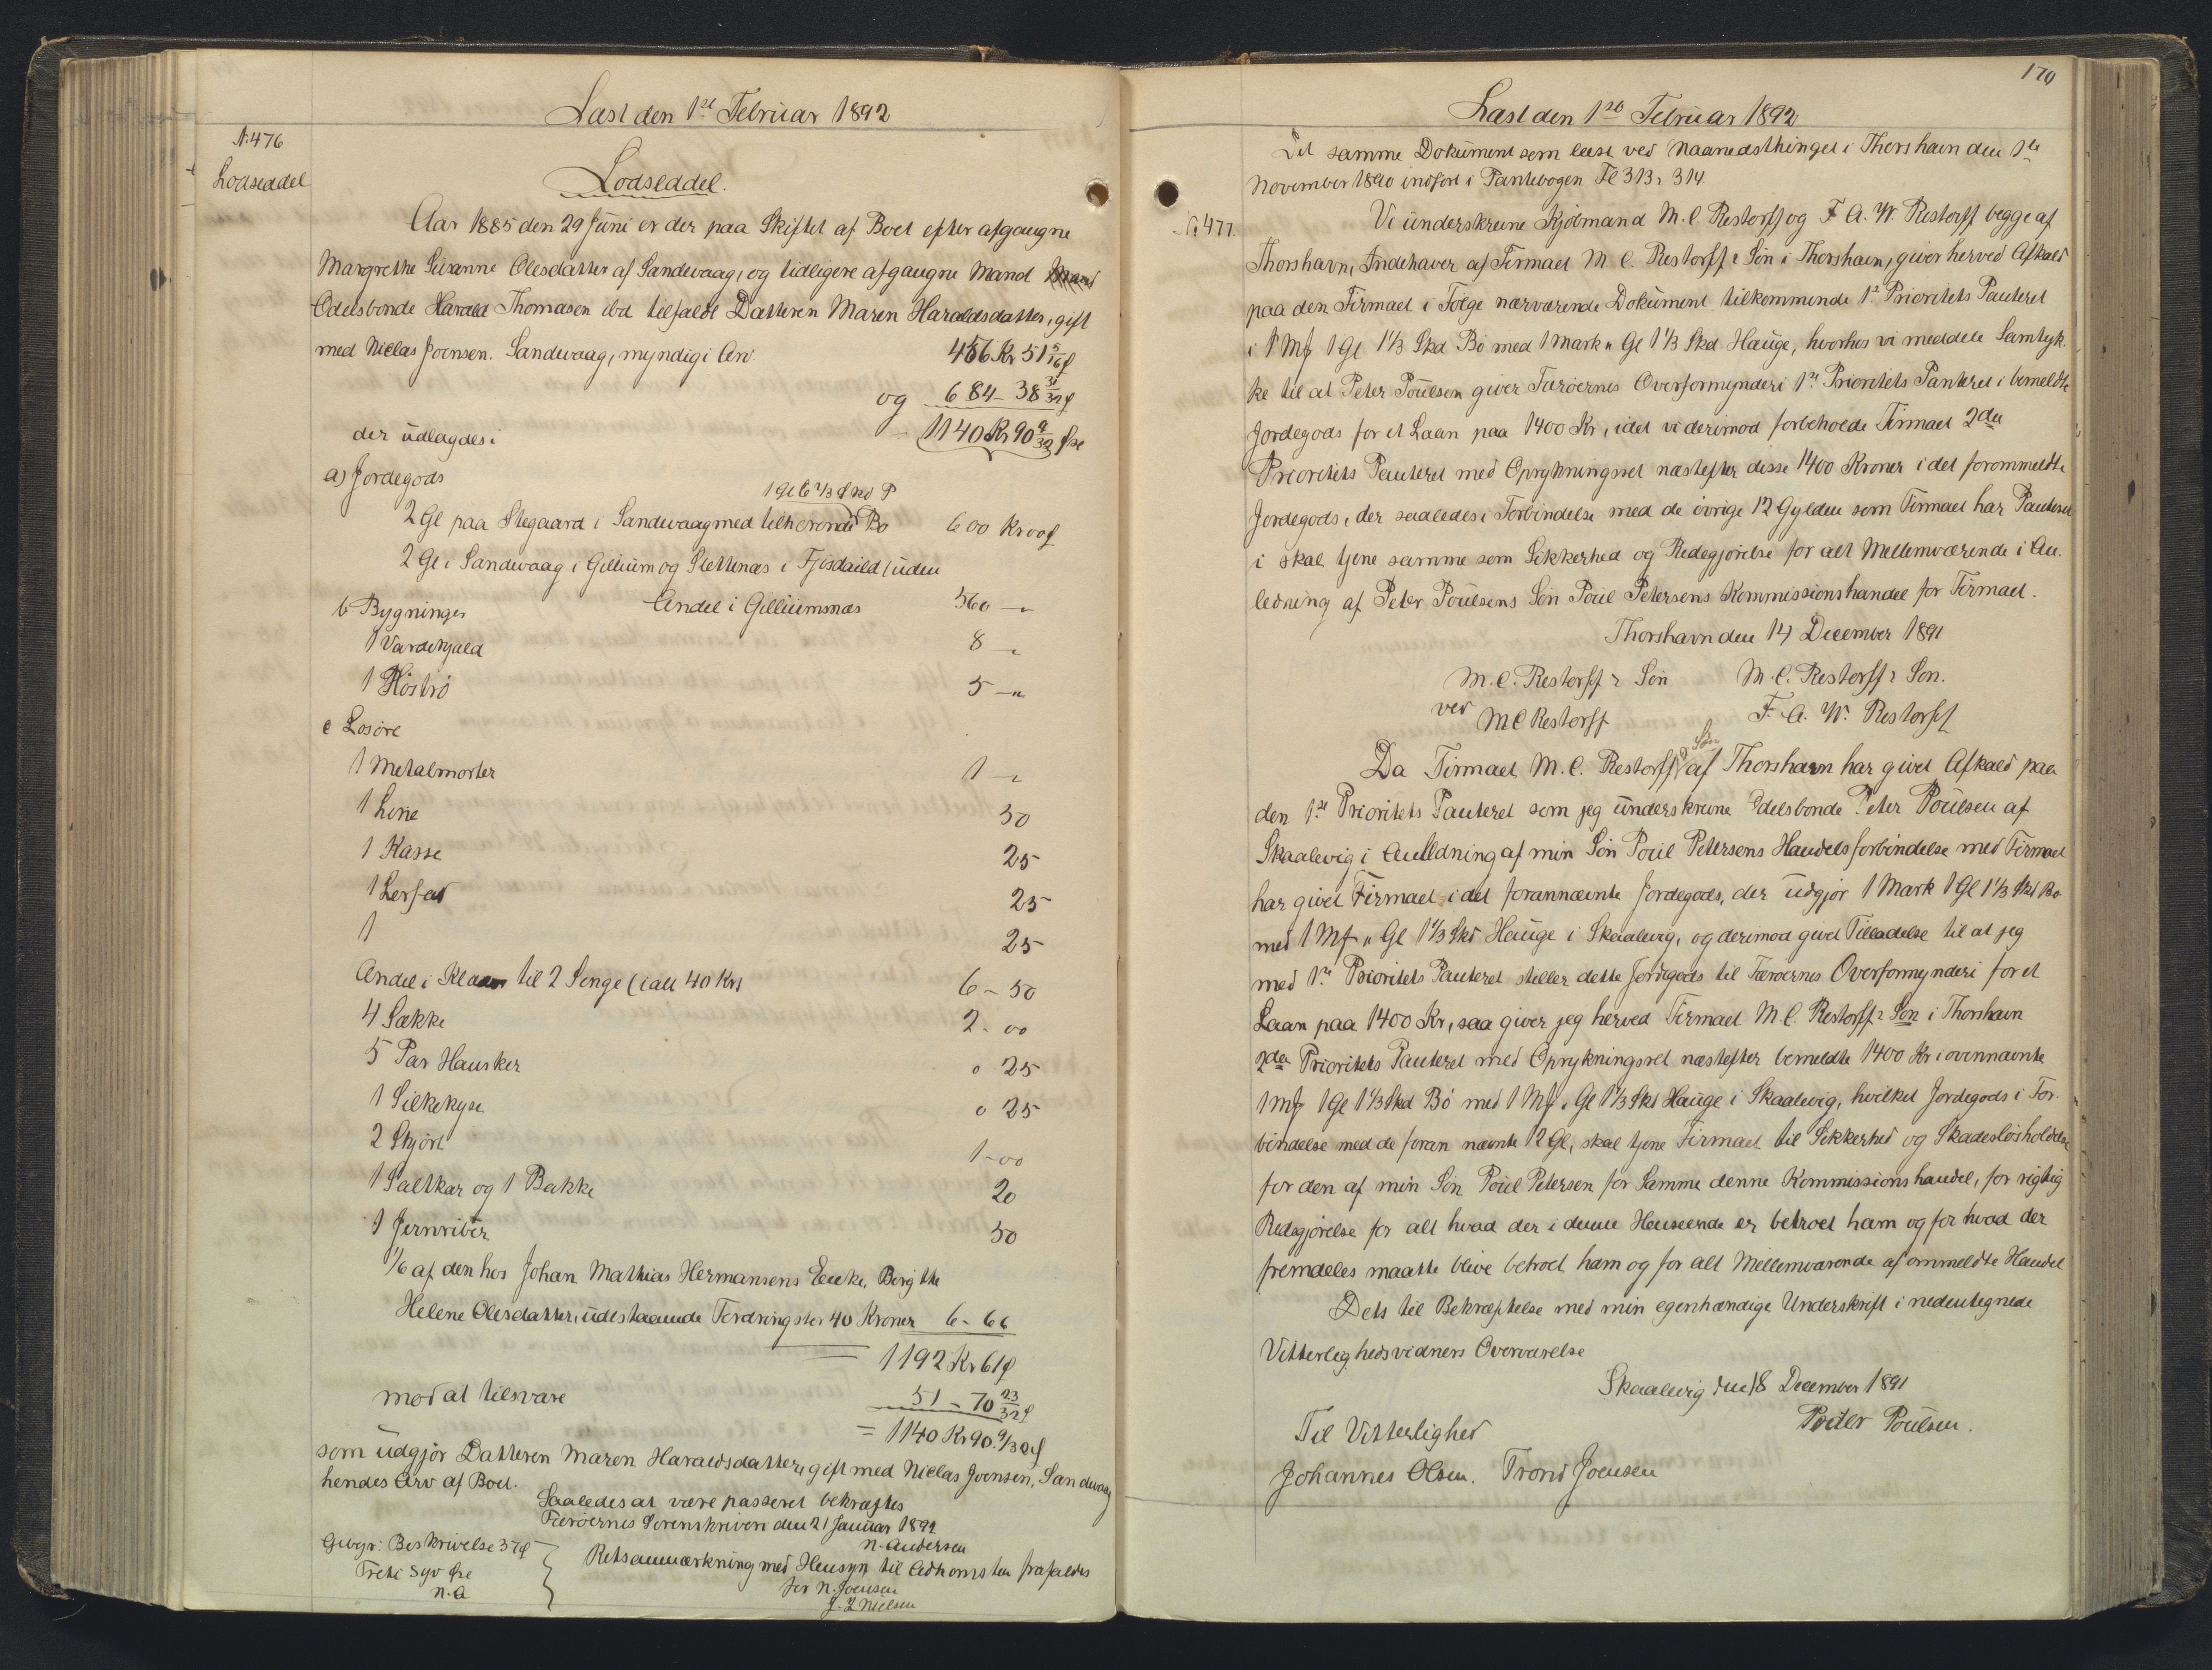 Læst den 1ste Februar 1892
N. 476
Lodseddel
Lodseddel.
Aar 1885 den 29 Juni er der paa Skiftet af Boet efter afgangne
Margrethe Susanne Olesdatter af Sandevaag, og tidligere afgangne Mand
Odelsbonde Harald Thomasen ibd tilfaldt Datteren Maren Haraldsdatter, gift
med Niclas Joensen. Sandevaag, myndig i Arv 456 Kr 51 5/16 ø
og 684 - 38 31/32 ø
der udlagdes i 1140 Kr 90 9/32 Øre
a) Jordegods
1 Gl 6 2/3 Skd P
2 Gl paa Stegaard i Sandevaag med tilhørende Bø 600 Kr 00 ø
2 Gl i Sandevaag i Gillium og Slettenæs i Fjosdaild (uden
Andel i Gilliumsnæs 560 - "
b Bygninger
1 Vardehjald 8 - "
1 Høstrø 5 - "
c Løsøre
1 Metalmorter 1 - "
1 Line 50
1 Kasse 25
1 Lerfad 25
1 25
Andel i Klæder til 2 Senge (i alt 40 Kr) 6 - 50
4 Sække 2 - 00
5 Par Hansker 0 25
1 Silkekyse 0 25
2 Skjørt 1 - 00
1 Saltkar og 1 Bakke 20
1 Jernriber 50
1/6 af den hos Johan Mathias Hermansens Enke, Birgithe
Helene Olesdatter, udestaaende Fordring stor 40 Kroner 6 - 66
= 1192 Kr 61 ø
mod at tilsvare 51 - 70 23/32 ø
= 1140 Kr 90 9/32 ø
som udgjør Datteren Maren Haraldsdatter, gift med Niclas Joensen, Sandevaag
hendes Arv af Boet.
Saaledes at være passeret bekræftes
Færøernes Sorenskriveri den 21 Januar 1892
N. Andersen
Gebyr: Beskrivelse 37 ø
Treti Syv Øre
N. A
Retsanmærkning med Hensyn til Adkomsten frafaldes
for N. Joensen
J. Z Nielsen
170
Læst den 1ste Februar 1892
Det samme Dokument som læst ved Maanedsthinget i Thorshavn den 1ste
November 1890 indført i Pantebogen Fl 313, 314
No. 477.
Vi underskrevne Kjøbmænd M. C. Restorff og F. A. W. Restorff begge af
Thorshavn, Indehaver af Firmaet M. C. Restorff & Søn i Thorshavn, giver herved Afkald
paa den Firmaet i Følge nærværende Dokument tilkommende 1ste Prioritets Panteret
i 1 Mk 1 Gl 1 1/3 Skd Bø med 1 Mark " Gl 1 1/3 Skd Hauge, hvorhos vi meddele Samtyk-
ke til at Peter Poulsen giver Færøernes Overformynderi 1ste Prioritets Panteret i bemeldte
Jordegods for et Laan paa 1400 Kr, idet vi derimod forbeholde Firmaet 2den
Prioritets Panteret med Oprykningsret næstefter disse 1400 Kroner i det forommeldte
Jordegods, der saaledes i Forbindelse med de øvrige 12 Gylden som Firmaet har Panteret
i skal tjene samme som Sikkerhed og Redegjørelse for alt Mellemværende i An-
ledning af Peter Poulsens Søn Poul Petersens Kommissionshandel for Firmaet.
Thorshavn den 14 December 1891
M. C. Restorff & Søn M. C. Restorff & Søn.
ved M C Restorff F. A. W. Restorff
& Søn
Da Firmaet M. C. Restorff af Thorshavn har givet Afkald paa
den 1ste Prioritets Panteret som jeg underskrevne Odelsbonde Peter Poulsen af
Skaalevig i Anledning af min Søn Poul Petersens Handelsforbindelse med Firmaet
har givet Firmaet i det forannævnte Jordegods, der udgjør 1 Mark 1 Gl 1 1/3 Skd Bø
med 1 Mk " Gl 1 1/3 Skd Hauge i Skaalevig, og derimod givet Tilladelse til at jeg
med 1ste Prioritets Panteret stiller dette Jordegods til Færøernes Overformynderi for et
Laan paa 1400 Kr, saa giver jeg herved Firmaet M. C. Restorff & Søn i Thorshavn
2den Prioritets Panteret med Oprykningsret næstefter bemeldte 1400 Kr i ovennævnte
1 Mk 1 Gl 1 1/3 Skd Bø med 1 Mk " Gl 1 1/3 Skd Hauge i Skaalevig, hvilket Jordegods i For-
bindelse med de foran nævnte 12 Gl, skal tjene Firmaet til Sikkerhed og Skadesløsholdelse
for den af min Søn Poul Petersen for Samme denne Kommissionshandel, for rigtig
Redegjørelse for alt hvad der i denne Henseende er betroet ham og for hvad der
fremdeles maatte blive betroet ham og for alt Mellemværende af ommeldte Handel
Dets til Bekræftelse med min egenhændige Underskrift i nedentegnede
Vitterlighedsvidners Overværelse
Skaalevig den 18 December 1891
Peder Poulsen.
Til Vitterlighed
Johannes Olsen. Trond Joensen